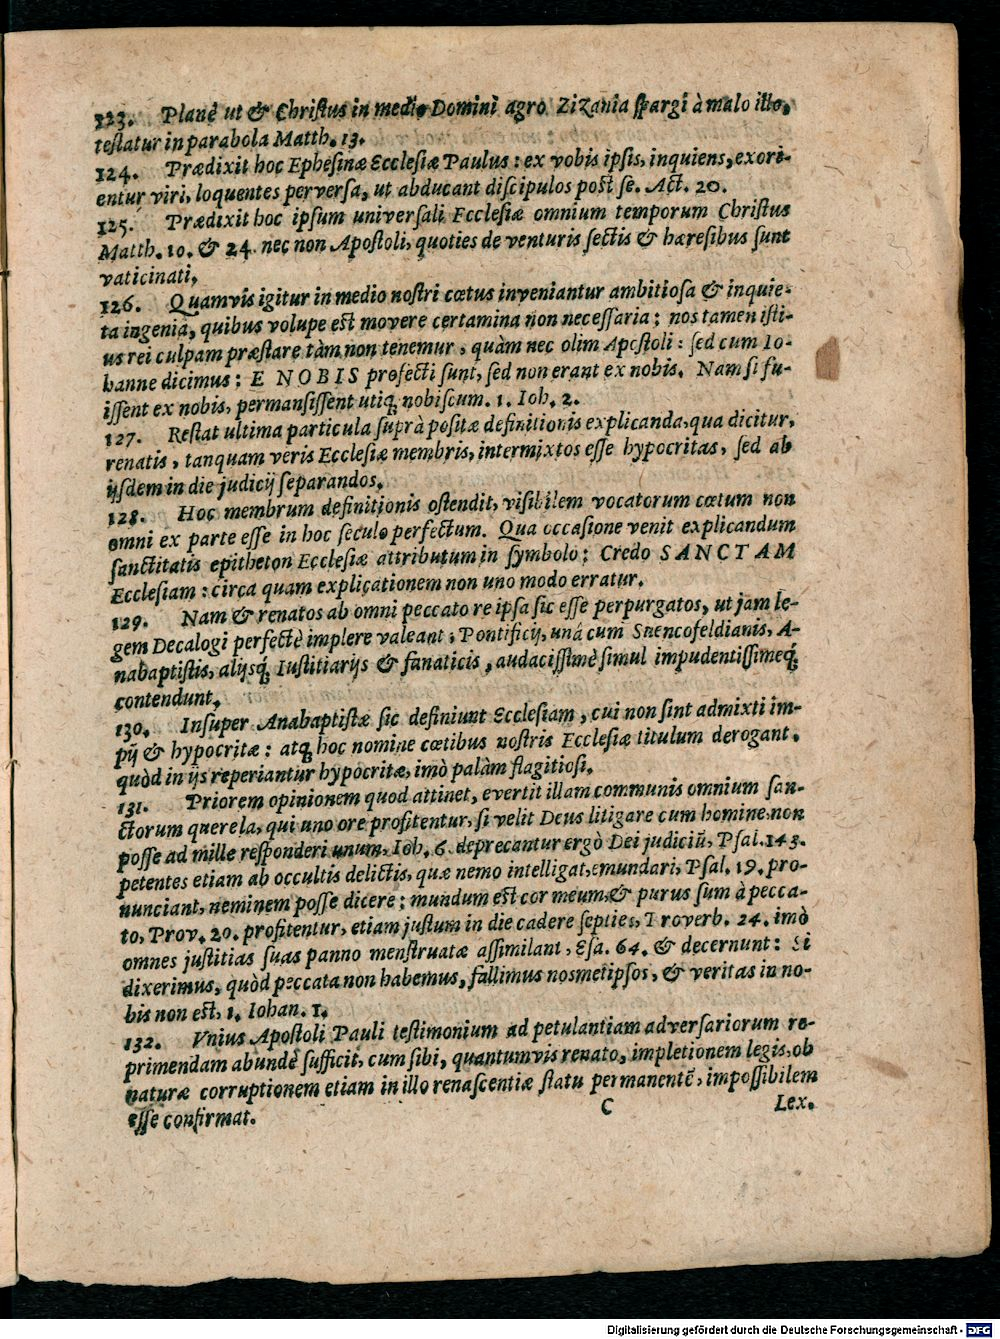 123. Planè ut & Christus in medio Domini agro Zizania spargi à malo illo,
testatur in parabola Matth. 13.
124. Prædixit hoc Ephesinæ Ecclesiæ Paulus: ex vobis ipsis, inquiens, exori-
entur viri, loquentes perversa, ut abducant discipulos post se. Act. 20.
125. Prædixit hoc ipsum universali Ecclesiæ omnium temporum Christus
Matth. 10. & 24. nec non Apostoli, quoties de venturis sectis & hæresibus sunt
vaticinati.
126. Quamvis igitur in medio nostri cœtus inveniantur ambitiosa & inquie-
ta ingenia, quibus volupe est movere certamina non necessaria; nos tamen isti-
us rei culpam præstare tàm non tenemur, quàm nec olim Apostoli: sed cum Io-
hanne dicimus: E NOBIS profecti sunt, sed non erant ex nobis. Nam si fu-
issent ex nobis, permansissent utiq; nobiscum. 1. Ioh. 2.
127. Restat ultima particula suprà positæ definitionis explicanda, qua dicitur,
renatis, tanquam veris Ecclesiæ membris, intermixtos esse hypocritas, sed ab
ijsdem in die judicij separandos.
128. Hoc membrum definitionis ostendit, visibilem vocatorum cœtum non
omni ex parte esse in hoc seculo perfectum. Qua occasione venit explicandum
sanctitatis epitheton Ecclesiæ attributum in symbolo: Credo SANCTAM
Ecclesiam: circa quam explicationem non uno modo erratur.
129. Nam & renatos ab omni peccato re ipsa sic esse perpurgatos, ut jam le-
gem Decalogi perfectè implere valeant, Pontificij, unâ cum Suencofeldianis, A-
nabaptistis, alijsq; Iustitiarijs & fanaticis, audacissimè simul impudentissimeq;
contendunt.
130. Insuper Anabaptistæ sic definiunt Ecclesiam, cui non sint admixti im-
pij & hypocritæ: atq; hoc nomine cœtibus nostris Ecclesiæ titulum derogant,
quòd in ijs reperiantur hypocritæ, imò palàm flagitiosi.
131. Priorem opinionem quod attinet, evertit illam communis omnium san-
ctorum querela, qui uno ore profitentur, si velit Deus litigare cum homine, non
posse ad mille responderi unum, Iob. 6. deprecantur ergò Dei judiciū, Psal. 143.
petentes etiam ab occultis delictis, quæ nemo intelligat, emundari, Psal. 19. pro-
nunciant, neminem posse dicere: mundum est cor meum, & purus sum à pecca-
to, Prov. 20. profitentur, etiam justum in die cadere septies, Proverb. 24. imò
omnes justitias suas panno menstruatæ assimilant, Esa. 64. & decernunt: Si
dixerimus, quòd peccata non habemus, fallimus nosmetipsos, & veritas in no-
bis non est, 1. Iohan. 1.
132. Vnius Apostoli Pauli testimonium ad petulantiam adversariorum re-
primendam abundè sufficit, cum sibi, quantumvis renato, impletionem legis, ob
naturæ corruptionem etiam in illo renascentiæ statu permanentē, impossibilem
esse confirmat.
C Lex.
Digitalisierung gefördert durch die Deutsche Forschungsgemeinschaft - DFG